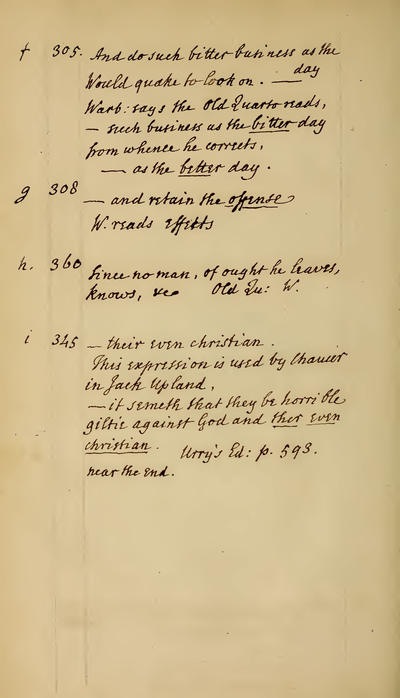 f 305. And do such bitter business as the
day
Would quake to look on. —
Warb: says the Old Quarto reads,
— such business as the bitter day
from whence he corrects,
— as the better day.
g 308 — and retain the offense
W. reads Effects
h. 360 Since no man, of ought he leaves,
knows, &c Old Qu: W.
i 345 — their even christian.
This expression is used by Chaucer
in Jack Upland,
— it semeth that they be horrible
giltie against God and ther even
christian. Urry's Ed: p. 593.
near the end.